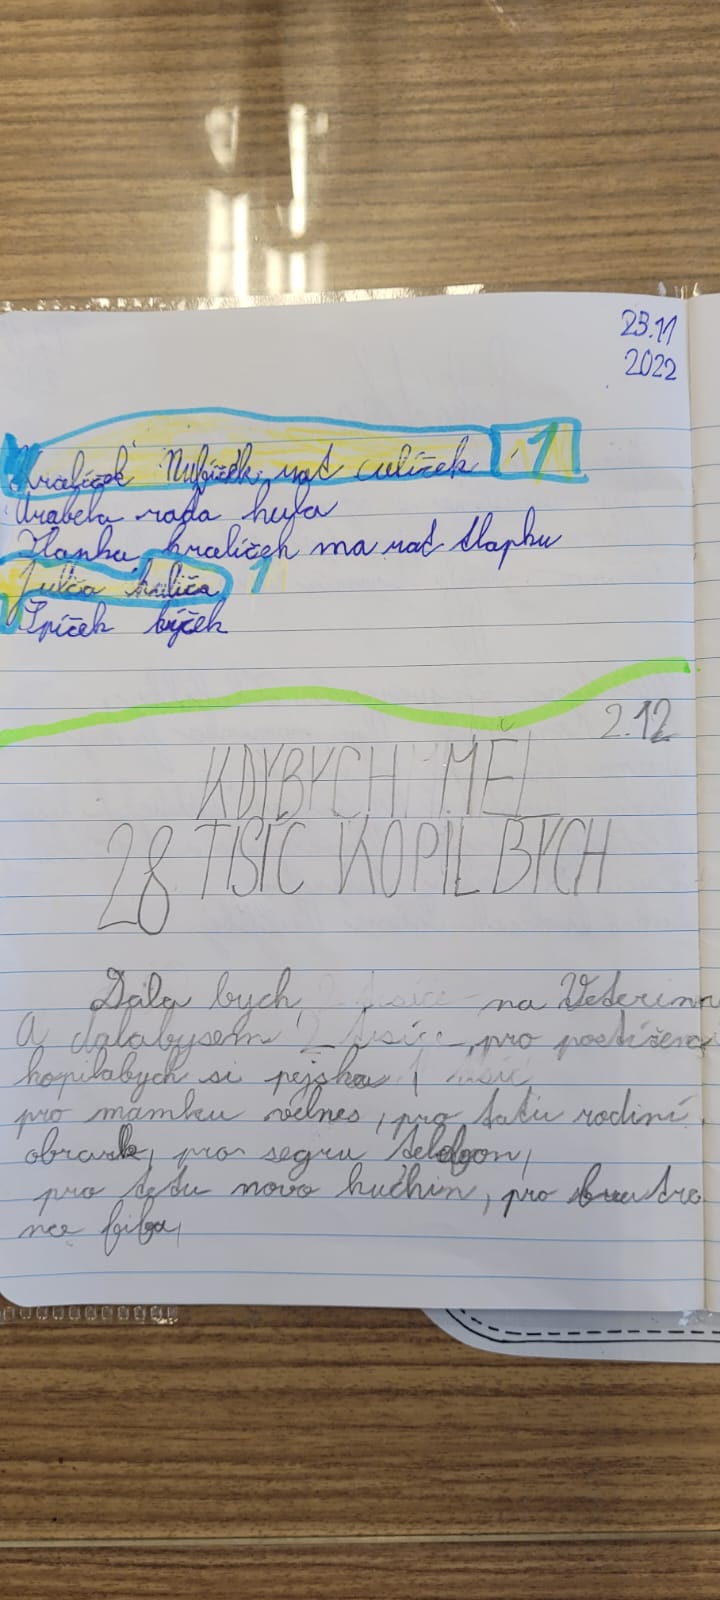 23.11
2022
Kralíček Nufíček rad culíček 1
Arabela rada hula
Hanka kralíček ma rad tlapku
Julča kulica 1
Špíček býček
2.12
KDYBYCH MĚL
28 TISÍC KOPIL BYCH
Dala bych 2 tisíce na Veterin
A dalabysem 2 tisíce, pro postižen
kopilabych si pejska 1 tisíc,
pro mamku velnes, pro tatu rodiní
obrask, pro segru telefon,
pro tetu novo kuchin, pro
nce fifa,